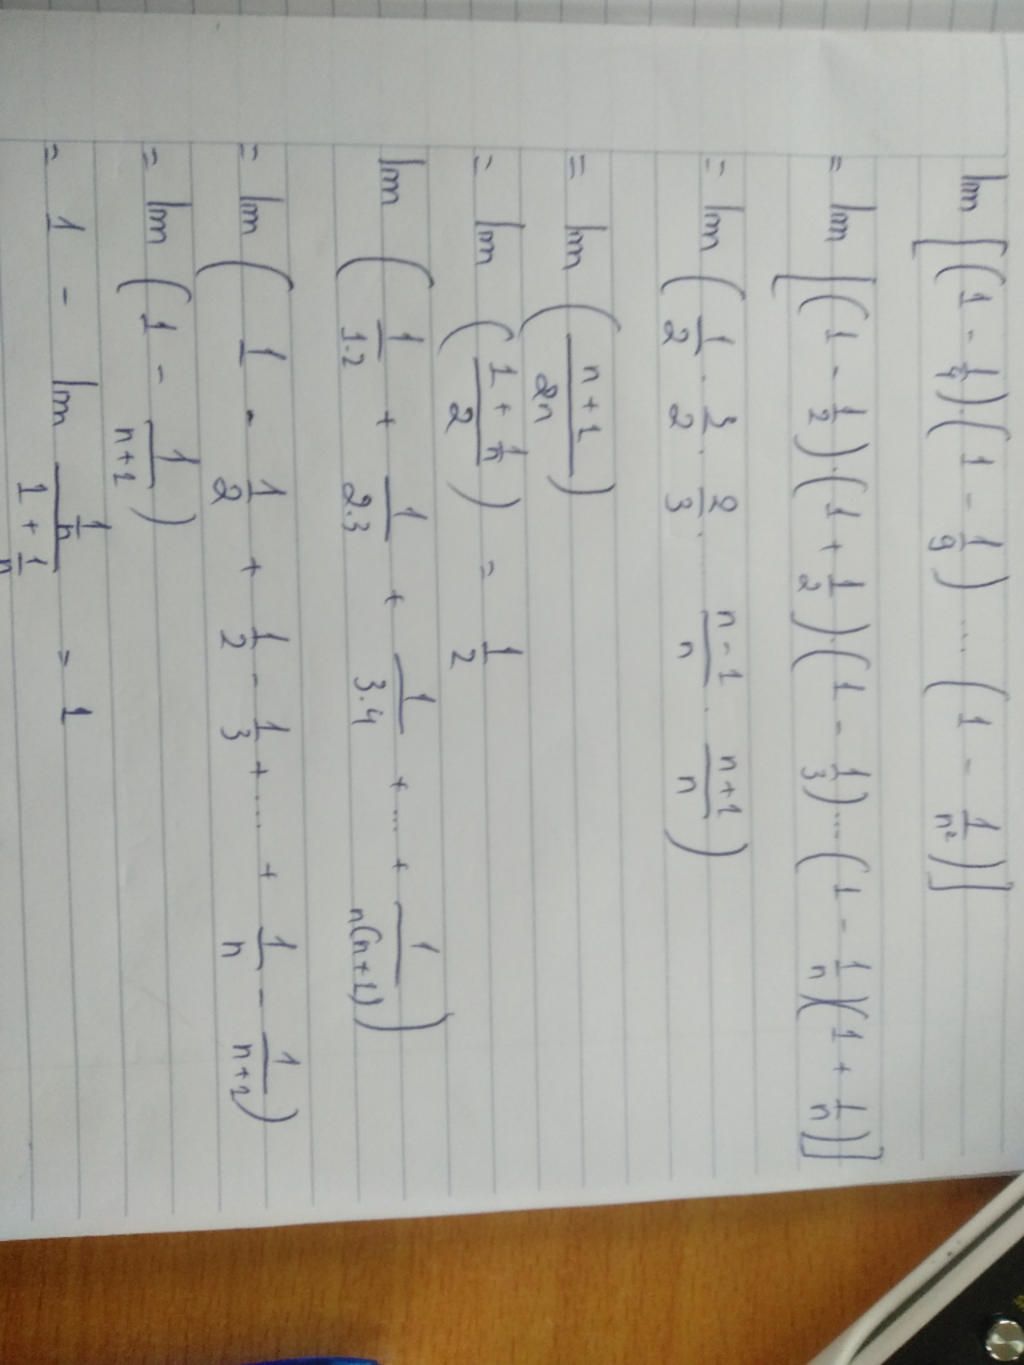 lim [(1 - 1/4)(1 - 1/9) .... (1 - 1/n²)]
= lim [(1 - 1/2)(1 + 1/2)(1 - 1/3)....(1 - 1/n)(1 + 1/n)]
= lim (1/2 . 3/2 . 2/3 ..... n-1/n . n+1/n)
= lim (n+1/2n)
= lim (1 + 1/n / 2) = 1/2
lim (1/1.2 + 1/2.3 + 1/3.4 + .... + 1/n(n+1))
= lim (1 - 1/2 + 1/2 - 1/3 + .... + 1/n - 1/n+1)
= lim (1 - 1/n+1)
= 1 - lim 1/n / 1 + 1/n = 1